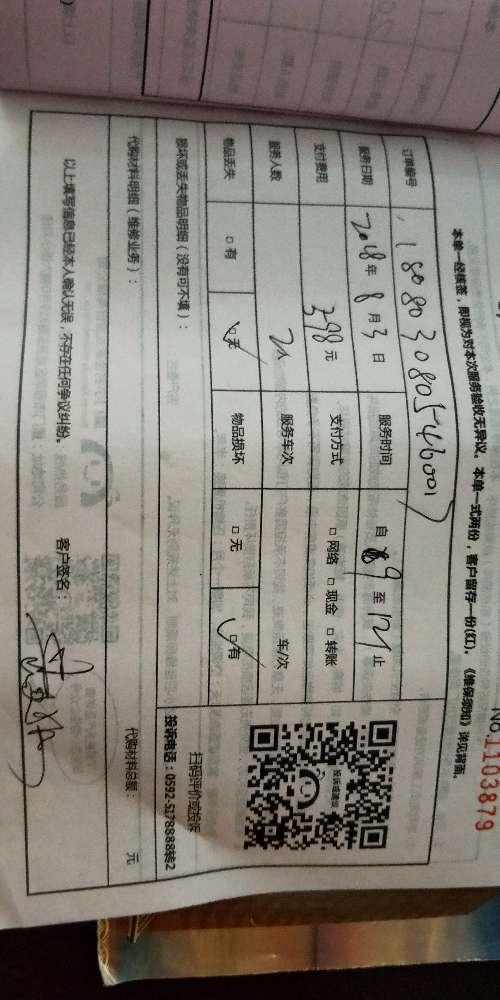 No.1103879
本单一经核签，即视为对本次服务验收无异议。本单一式两份，客户留存一份(红)。《维保须知》详见背面。
订单编号 180803080546001
服务日期 2018年8月3日 服务时间 自 9 至 12 止
支付费用 398元 支付方式 □ 网络 □ 现金 □ 转账
服务人数 服务车次 车/次
物品丢失 □ 有 □ 无 物品损坏 □ 无 □ 有
投诉或建议
扫码评价或投诉
损坏或丢失物品明细（没有可不填）：
投诉电话：0592-5178888转2
代购材料明细（维修业务）： 代购材料总额： 元
以上填写信息已经本人确认无误，不存在任何争议纠纷。 客户签名：